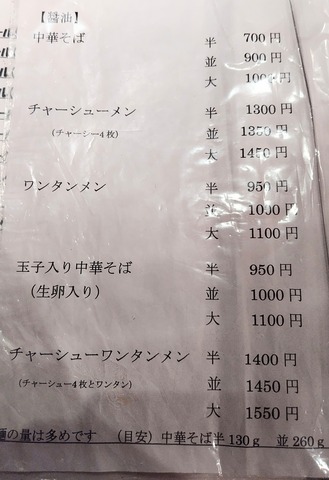 【醤油】
中華そば 半 700円
並 900円
大 1000円
チャーシューメン 半 1300円
(チャーシー4枚) 並 1350円
大 1450円
ワンタンメン 半 950円
並 1000円
大 1100円
玉子入り中華そば 半 950円
(生卵入り) 並 1000円
大 1100円
チャーシューワンタンメン 半 1400円
(チャーシュー4枚とワンタン) 並 1450円
大 1550円
麺の量は多めです (目安) 中華そば半130g 並260g